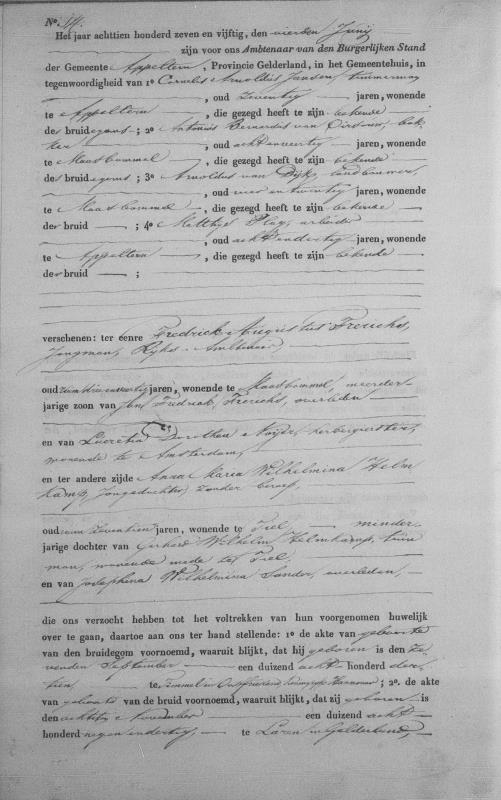 No. 14.
Het jaar achttien honderd zeven en vijftig, den vierden Junij
zijn voor ons Ambtenaar van den Burgerlijken Stand
der Gemeente Appeltern, Provincie Gelderland, in het Gemeentehuis, in
tegenwoordigheid van 1o Cornelis Arnoldus Jansen, timmerman
, oud zeventig jaren, wonende
te Appeltern, die gezegd heeft te zijn bekende
des bruidegoms; 2o Antonius Bernardus van
, oud jaren, wonende
te Maasbommel, die gezegd heeft te zijn bekende
des bruidegoms; 3o Arnoldus van Dijk, landbouwer,
, oud twintig jaren, wonende
te Maasbommel, die gezegd heeft te zijn bekende
der bruid; 4o Matthijs Plug, arbeider
, oud acht en dertig jaren, wonende
te Appeltern, die gezegd heeft te zijn bekende
der bruid;
verschenen: ter eenre Fredrick Augustus Frerichs,
Jongman, Rijks Ambtenaar,
oud drie en veertig jaren, wonende te Maasbommel, meerder-
jarige zoon van Jan Fredrick Frerichs, overleden
en van Lucretia Dorothea herbergierster,
wonende te Amsterdam,
en ter andere zijde Anna Maria Wilhelmina Helm
kamp, Jongedochter, zonder beroep,
oud zeventien jaren, wonende te Tiel, minder-
jarige dochter van Gerhard Wilhelm Helmkamp, tuin
man, wonende mede te Tiel,
en van Josephena Wilhelmina Sander, overleden,
die ons verzocht hebben tot het voltrekken van hun voorgenomen huwelijk
over te gaan, daartoe aan ons ter hand stellende: 1o de akte van geboorte
van den bruidegom voornoemd, waaruit blijkt, dat hij geboren is den ze
venden September een duizend acht honderd der
tien te Timmel in Oostfriesland, Koningrijk Hannover; 2o. de akte
van geboorte van de bruid voornoemd, waaruit blijkt, dat zij geboren is
den achtste November een duizend acht
honderd negen en dertig, te Laren in Gelderland,